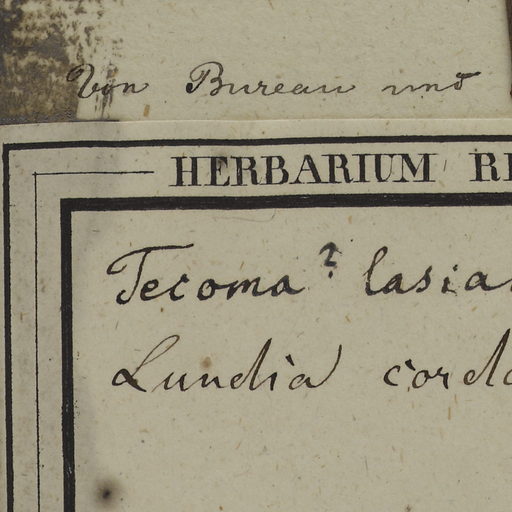 Von Bureau und
HERBARIUM RE
Tecoma? lasia
Lundia corda